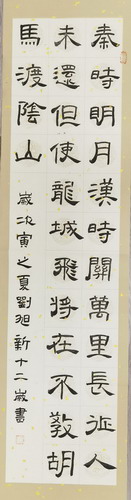 秦時明月漢時關萬里長征人
未還但使龍城飛將在不敎胡
馬渡陰山
歲次寅之夏劉旭新十二歲書